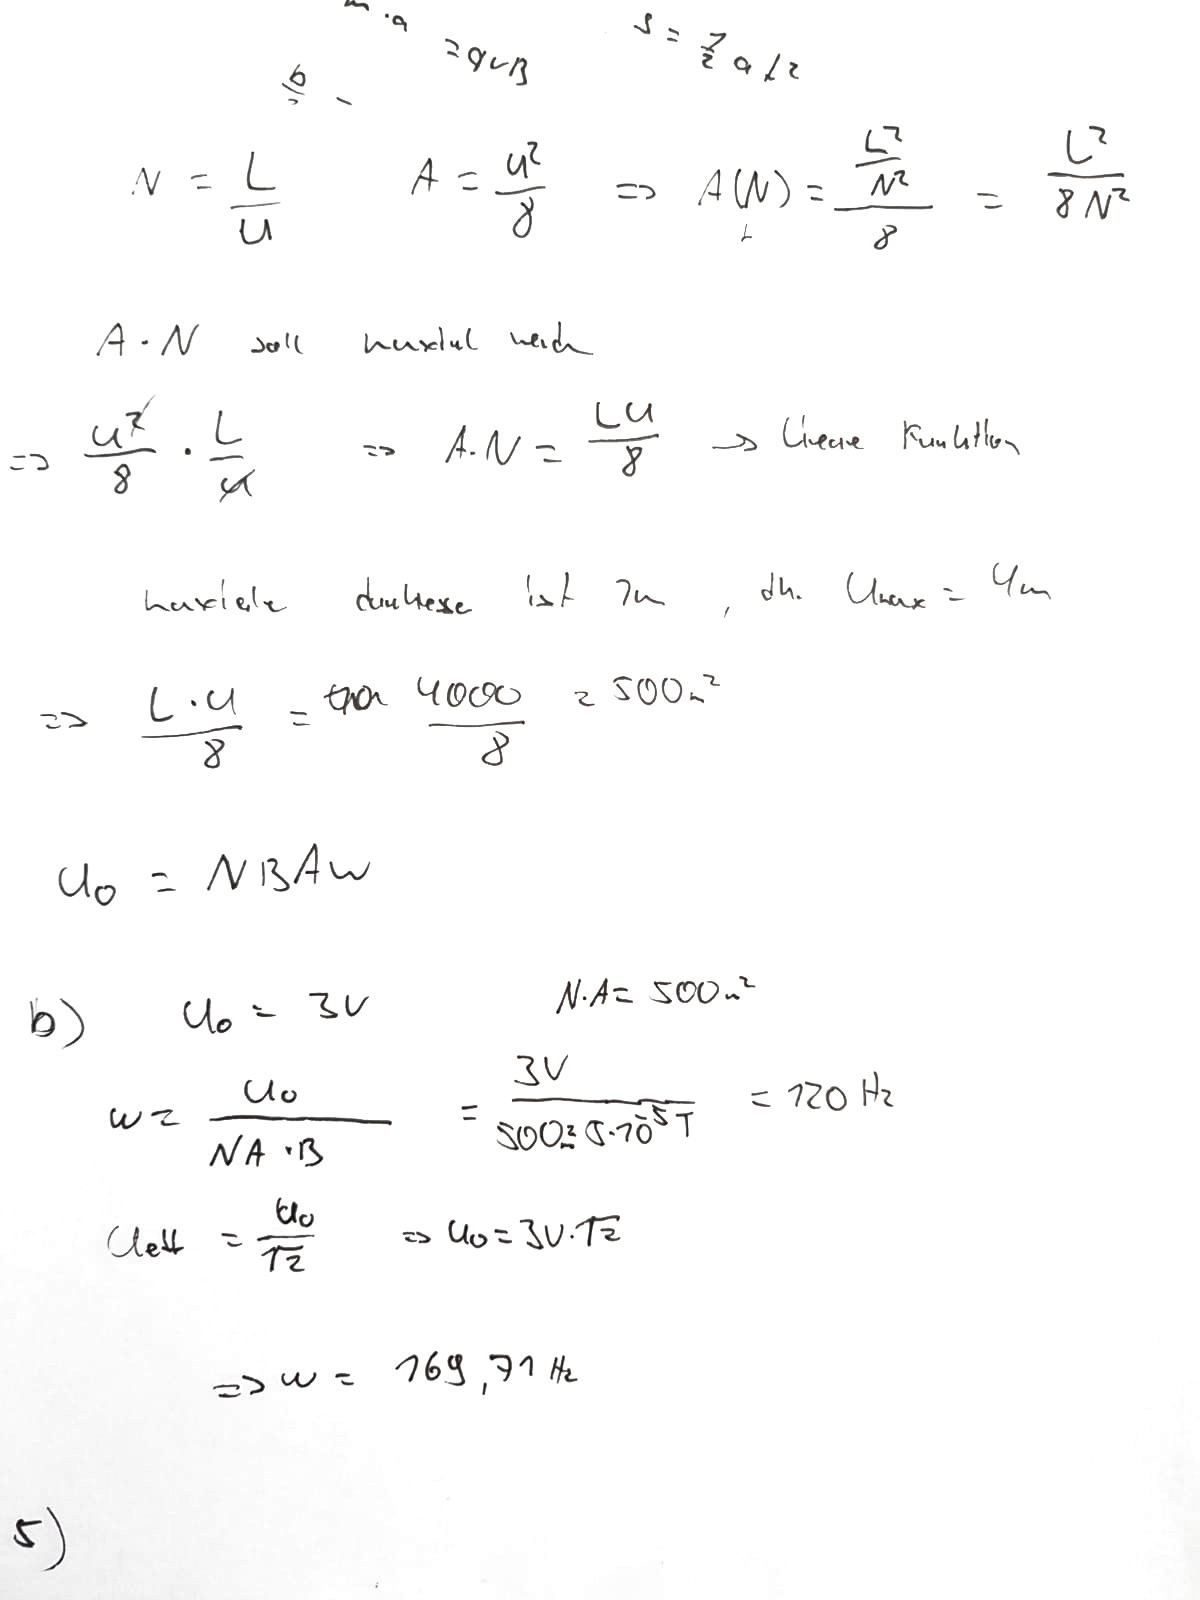 m · a = qvB s = 1/2 a t²
N = L/U A = U²/8 => A(N) = (L²/N²)/8 = L²/(8N²)
A · N soll maximal werden
=> U²/8 · L/U => A·N = LU/8 -> lineare Funktion
maximale ist 1m , dh. Umax = 4m
=> L·U/8 = 4000/8 = 500m²
U₀ = NBAω
b) U₀ = 3V N·A = 500m²
ω = U₀/(NA·B) = 3V/(500m² 5·10⁻⁵T) = 120 Hz
Ueff = U₀/√2 => U₀ = 3V·√2
=> ω = 169,71 Hz
5)